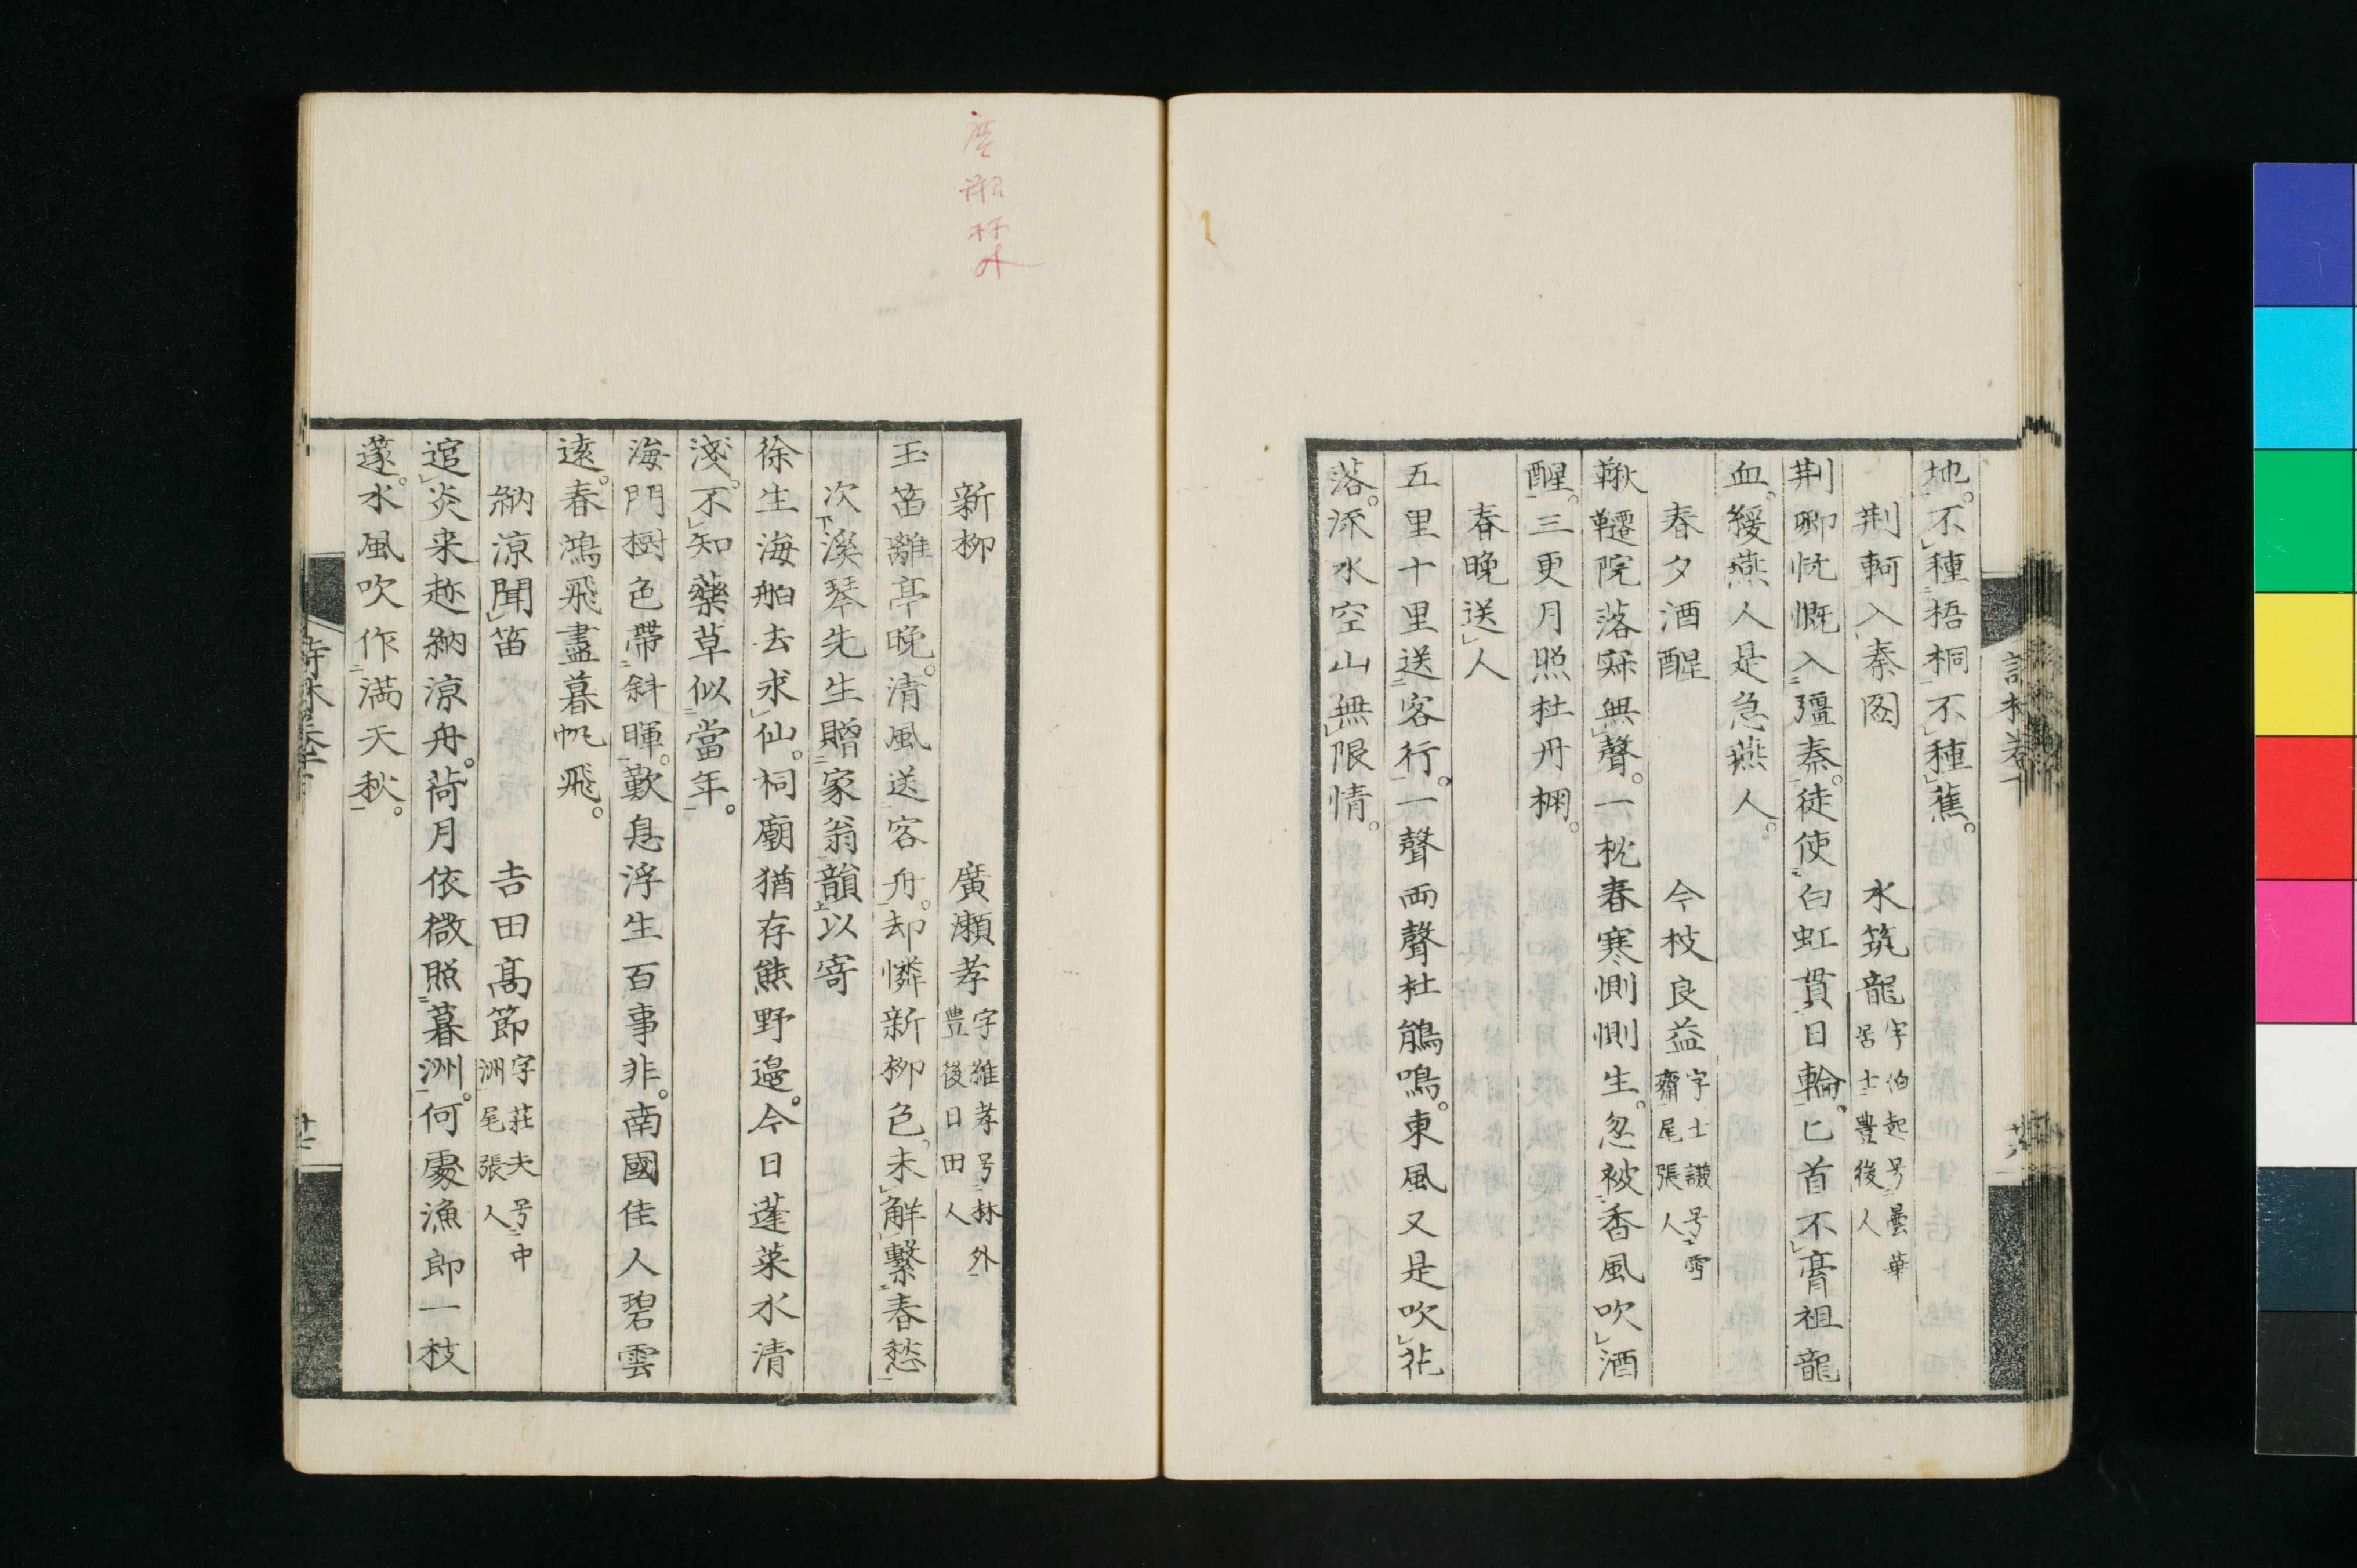 地。不種梧桐不種蕉。
荆軻入秦圖　水筑龍字伯起号曇華居士豊後人
荆卿忼慨入彊秦。徒使白虹貫日輪。匕首不膏祖龍
血。緩燕人是急燕人。
春夕酒醒　今枝良益字士讃号雪齋尾張人
鞦韆院落寂無聲。一枕春寒惻惻生。忽被香風吹酒
醒。三更月照牡丹棚。
春晩送人
五里十里送客行。一聲両聲杜鵑鳴。東風又是吹花
落。流水空山無限情。
新柳　廣瀬孝字維孝号林外豊後日田人
玉笛離亭晩。清風送客舟。却憐新柳色。未解繋春愁
次溪琴先生贈家翁韻以寄
徐生海舶去求仙。祠廟猶存熊野邉。今日蓬莱水清
淺。不知藥草似當年。
海門樹色帶斜暉。歎息浮生百事非。南國佳人碧雲
遠。春鴻飛盡暮帆飛。
納涼聞笛　吉田高節字莊夫号中洲尾張人
逭炎来趂納涼舟。荷月依微照暮洲。何處漁郎一枝
篴。水風吹作満天秋。